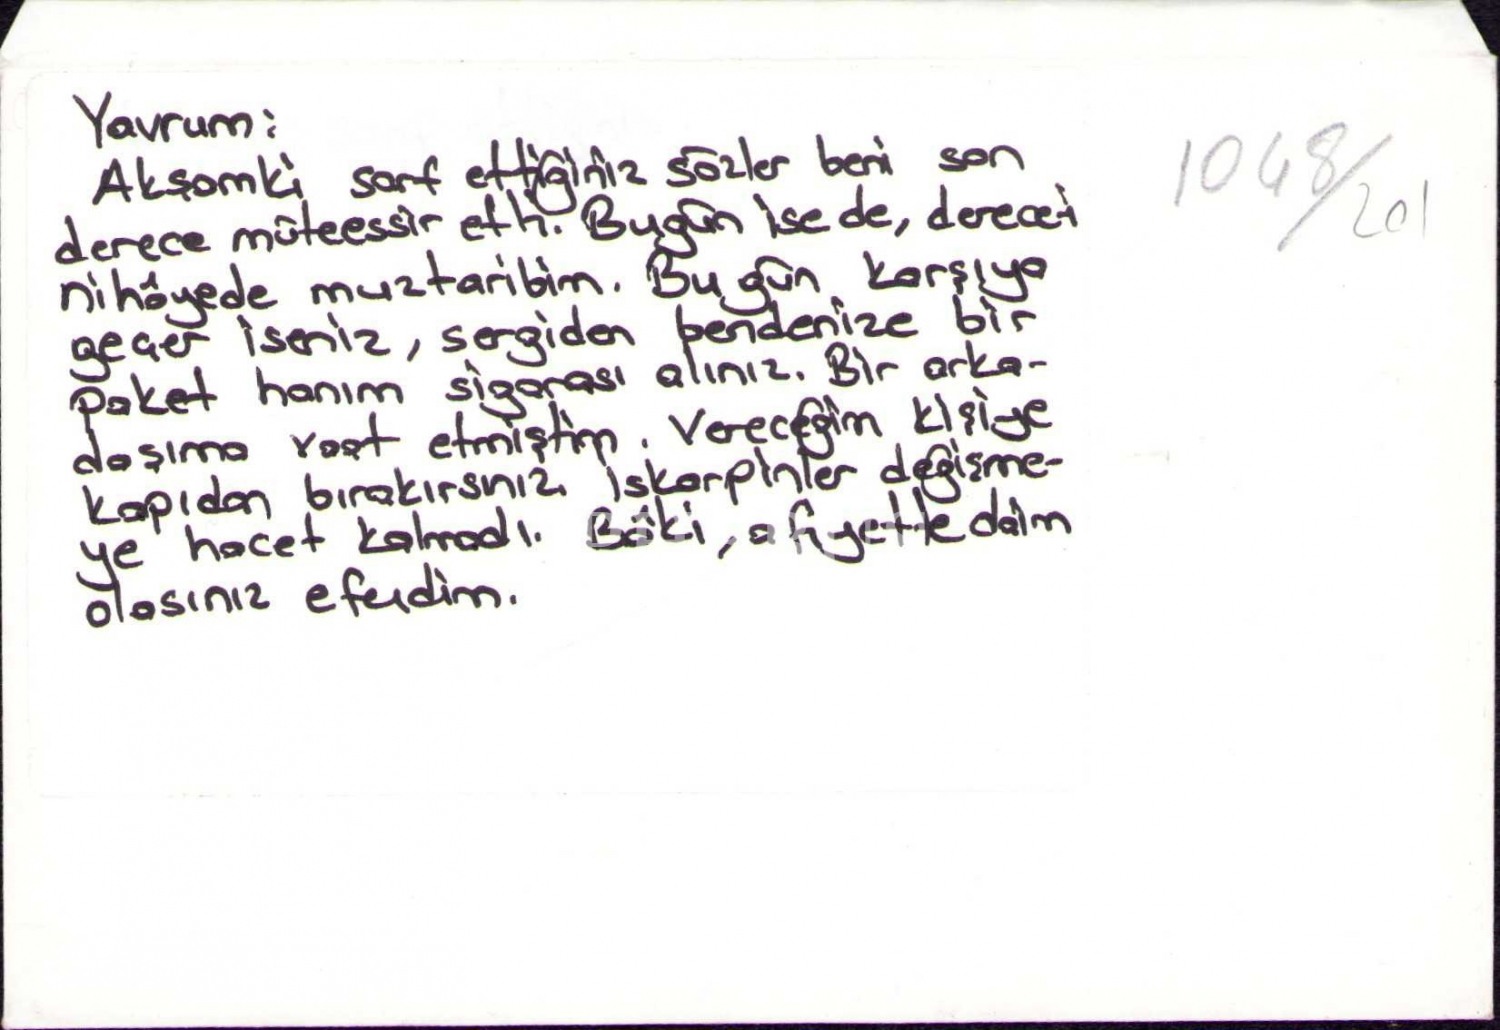 Yavrum:
Akşamki sarf ettiğiniz sözler beni son
derece müteessir etti. Bugün ise de, derece-i
nihâyede muztaribim. Bugün karşıya
geçer iseniz, sergiden bendenize bir
paket hanım sigarası alınız. Bir arka-
daşıma vaat etmiştim. Vereceğim kişiye
kapıdan bırakırsınız. İskarpinler değişme-
ye hacet kalmadı. Bâki, afiyette daim
olasınız efendim.
1048/201